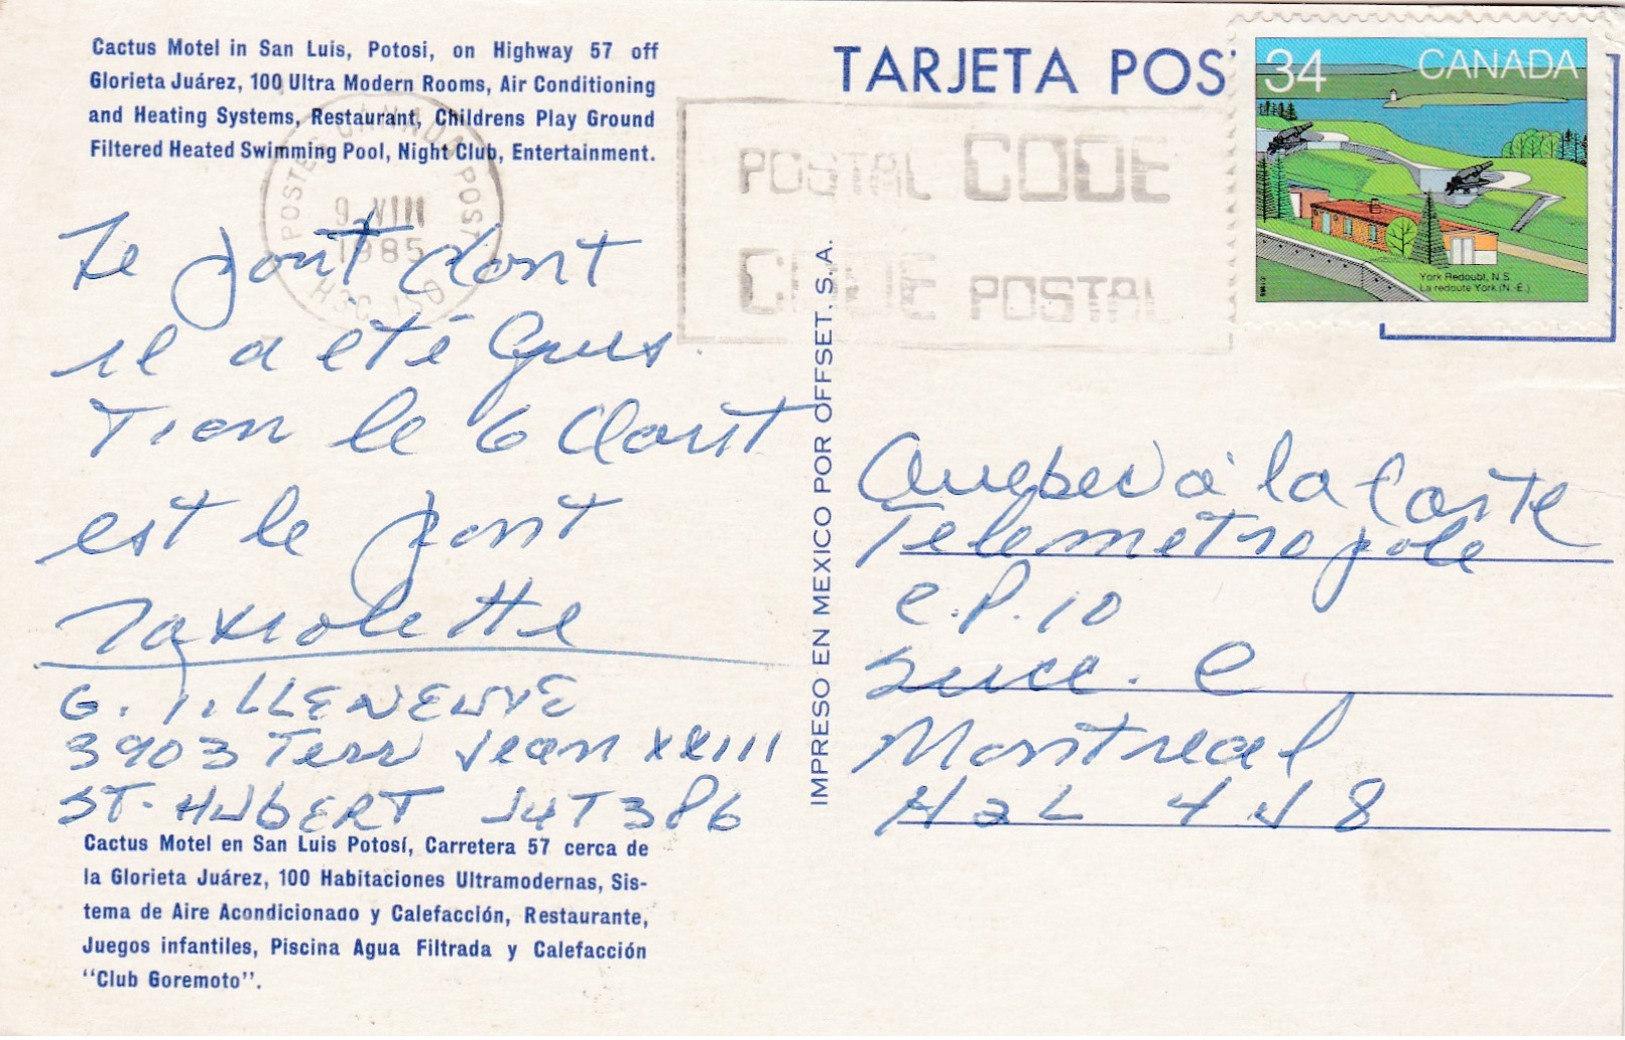 Cactus Motel in San Luis, Potosi, on Highway 57 off
Glorieta Juárez, 100 Ultra Modern Rooms, Air Conditioning
and Heating Systems, Restaurant, Childrens Play Ground
Filtered Heated Swimming Pool, Night Club, Entertainment.
POSTES CANADA POST
9 VIII
1985
H3C 1S0
Le pont dont
il a été ques
tion le 6 Clout
est le pont
G. VILLENEUVE
3903 Terr Jean XXIII
ST-HUBERT J4T 3P6
Cactus Motel en San Luis Potosí, Carretera 57 cerca de
la Glorieta Juárez, 100 Habitaciones Ultramodernas, Sis-
tema de Aire Acondicionado y Calefacción, Restaurante,
Juegos infantiles, Piscina Agua Filtrada y Calefacción
"Club Goremoto".
IMPRESO EN MEXICO POR OFFSET, S. A.
TARJETA POS
POSTAL CODE
CODE POSTAL
34 CANADA
York Redoubt, N.S.
La redoute York (N.-É.)
Quebec à la Carte
Telemetropole
C.P. 10
Succ. C
Montreal
H2L 4J8